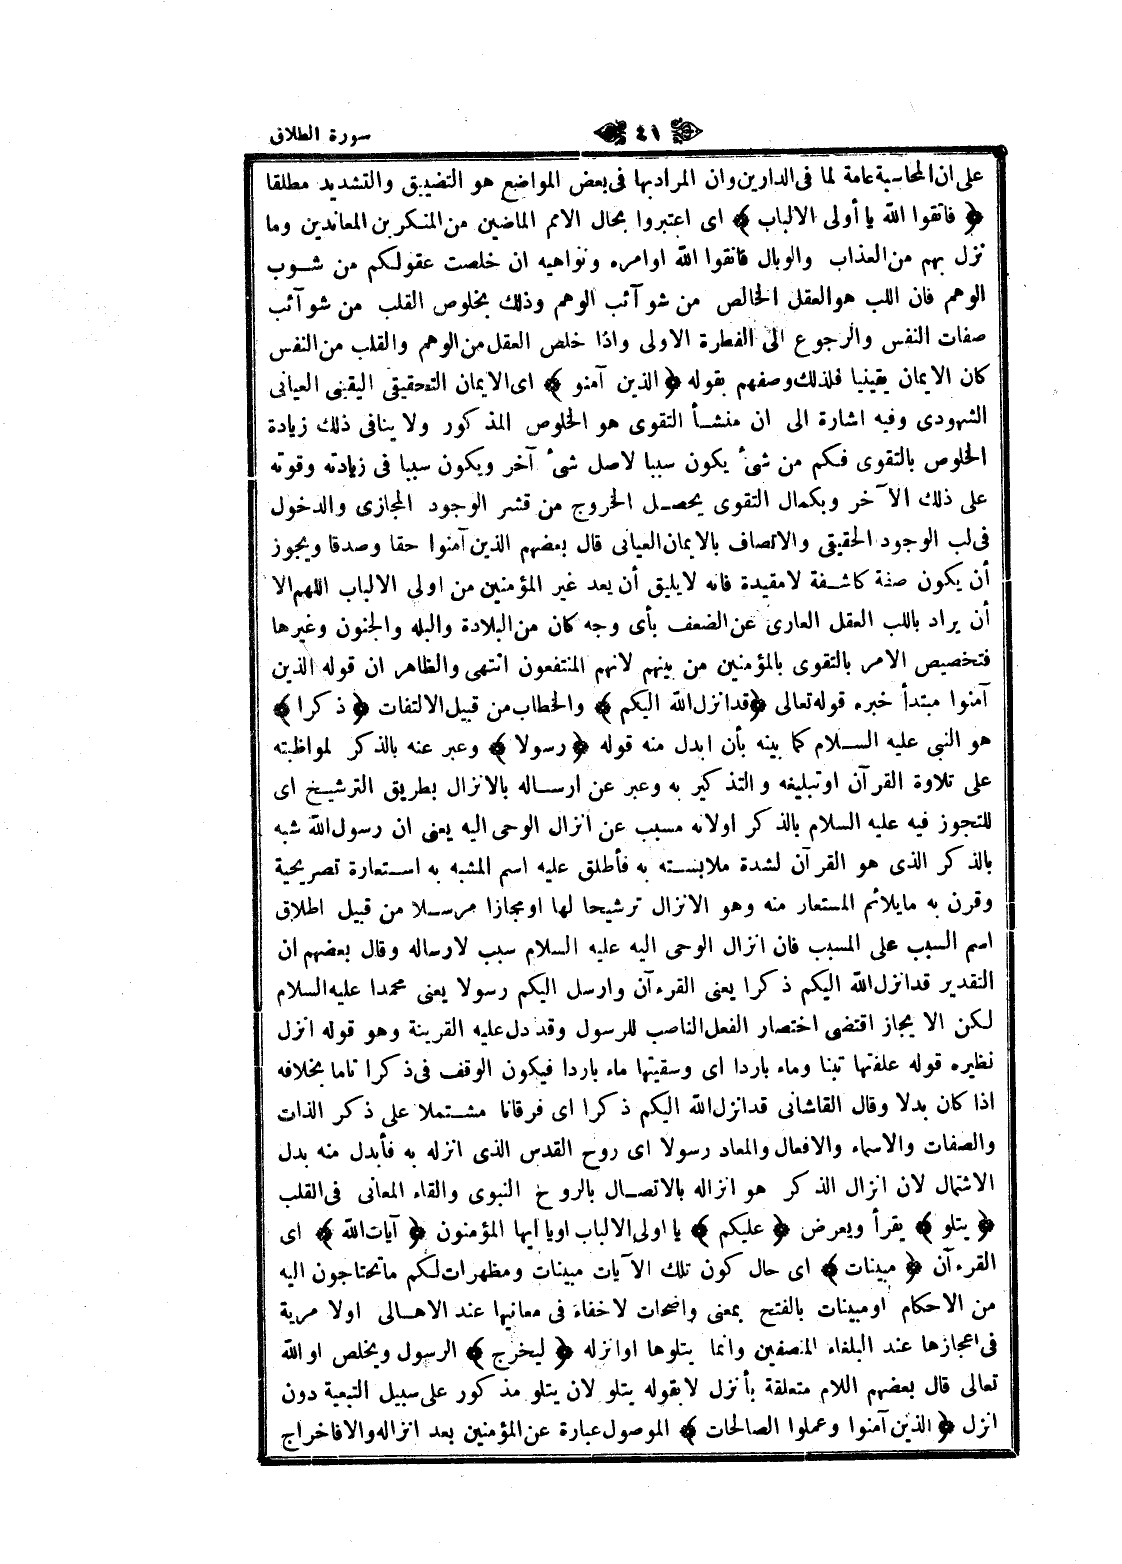 سورة الطلاق ٤١
على ان المحاسبة عامة لما فى الدارين وان المراد بها فى بعض المواضع هو التضييق والتشديد مطلقا
﴿ فاتقوا الله يا أولى الالباب ﴾ اى اعتبروا بحال الامم الماضين من المنكرين المعاندين وما
نزل بهم من العذاب والوبال فاتقوا الله اوامره ونواهيه ان خلصت عقولكم من شوب
الوهم فان اللب هو العقل الخالص من شوآئب الوهم وذلك بخلوص القلب من شوآئب
صفات النفس والرجوع الى الفطرة الاولى واذا خلص العقل من الوهم والقلب من النفس
كان الايمان يقينيا فلذلك وصفهم بقوله ﴿ الذين آمنو ﴾ اى الايمان التحقيقى اليقينى العيانى
الشهودى وفيه اشارة الى ان منشأ التقوى هو الخلوص المذكور ولا ينافى ذلك زيادة
الخلوص بالتقوى فكم من شئ يكون سببا لاصل شئ آخر ويكون سببا فى زيادته وقوته
على ذلك الآخر وبكمال التقوى يحصل الخروج من قشر الوجود المجازى والدخول
فى لب الوجود الحقيقى والاتصاف بالايمان العيانى قال بعضهم الذين آمنوا حقا وصدقا ويجوز
أن يكون صفة كاشفة لا مقيدة فانه لا يليق أن يعد غير المؤمنين من اولى الالباب اللهم الا
أن يراد باللب العقل العارى عن الضعف بأى وجه كان من البلادة والبله والجنون وغيرها
فتخصيص الامر بالتقوى بالمؤمنين من بينهم لانهم المنتفعون انتهى والظاهر ان قوله الذين
آمنوا مبتدأ خبره قوله تعالى ﴿ قد انزل الله اليكم ﴾ والخطاب من قبيل الالتفات ﴿ ذكرا ﴾
هو النبى عليه السلام كما بينه بأن ابدل منه قوله ﴿ رسولا ﴾ وعبر عنه بالذكر لمواظبته
على تلاوة القرآن او تبليغه والتذكير به وعبر عن ارساله بالانزال بطريق الترشيخ اى
للتجوز فيه عليه السلام بالذكر اولانه مسبب عن انزال الوحى اليه يعنى ان رسول الله شبه
بالذكر الذى هو القرآن لشدة ملابسته به فأطلق عليه اسم المشبه به استعارة تصريحية
وقرن به ما يلائم المستعار منه وهو الانزال ترشيحا لها او مجازا مرسلا من قبيل اطلاق
اسم السبب على المسبب فان انزال الوحى اليه عليه السلام سبب لارساله وقال بعضهم ان
التقدير قد انزل الله اليكم ذكرا يعنى القرءآن وارسل اليكم رسولا يعنى محمدا عليه السلام
لكن الا يجاز اقتضى اختصار الفعل الناصب للرسول وقد دل عليه القرينة وهو قوله انزل
نظيره قوله علفتها تبنا وماء باردا اى وسقيتها ماء باردا فيكون الوقف فى ذكرا تاما بخلافه
اذا كان بدلا وقال القاشانى قد انزل الله اليكم ذكرا اى فرقانا مشتملا على ذكر الذات
والصفات والاسماء والافعال والمعاد رسولا اى روح القدس الذى انزله به فأبدل منه بدل
الاشتمال لان انزال الذكر هو انزاله بالاتصال بالروخ النبوى والقاء المعانى فى القلب
﴿ يتلو ﴾ يقرأ ويعرض ﴿ عليكم ﴾ يا اولى الالباب او يا ايها المؤمنون ﴿ آيات الله ﴾ اى
القرءآن ﴿ مبينات ﴾ اى حال كون تلك الآيات مبينات ومظهرات لكم ما تحتاجون اليه
من الاحكام او مبينات بالفتح بمعنى واضحات لاخفاء فى معانيها عند الاهالى اولا مرية
فى اعجازها عند البلغاء المنصفين وانما يتلوها او انزله ﴿ ليخرج ﴾ الرسول ويخلص او الله
تعالى قال بعضهم اللام متعلقة بأنزل لا بقوله يتلو لان يتلو مذكور على سبيل التبعية دون
انزل ﴿ الذين آمنوا وعملوا الصالحات ﴾ الموصول عبارة عن المؤمنين بعد انزاله والا فاخراج